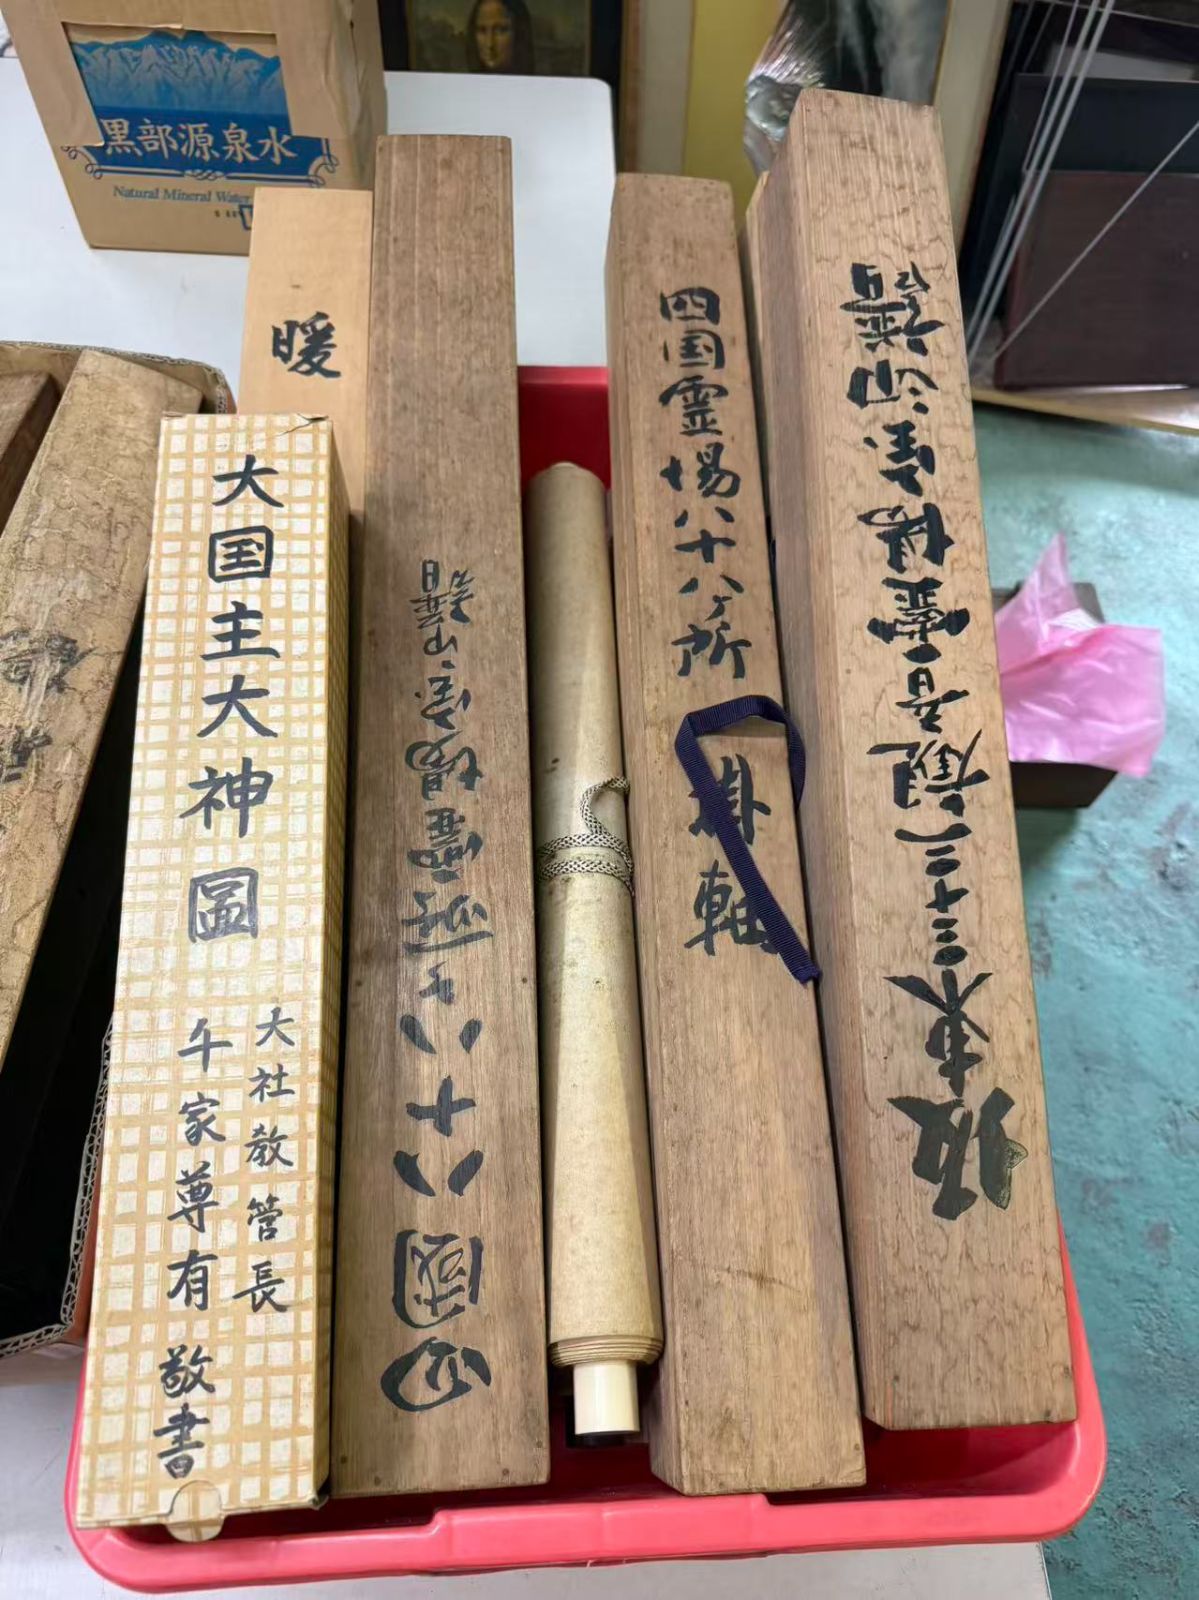 黒部源泉水
Natural Mineral Water
暖
大国主大神圖
大社教管長
千家尊有 敬書
四國八十八ヶ所靈場宝印譜
四国霊場八十八ヶ所 掛軸
坂東三十三観音靈場宝印譜